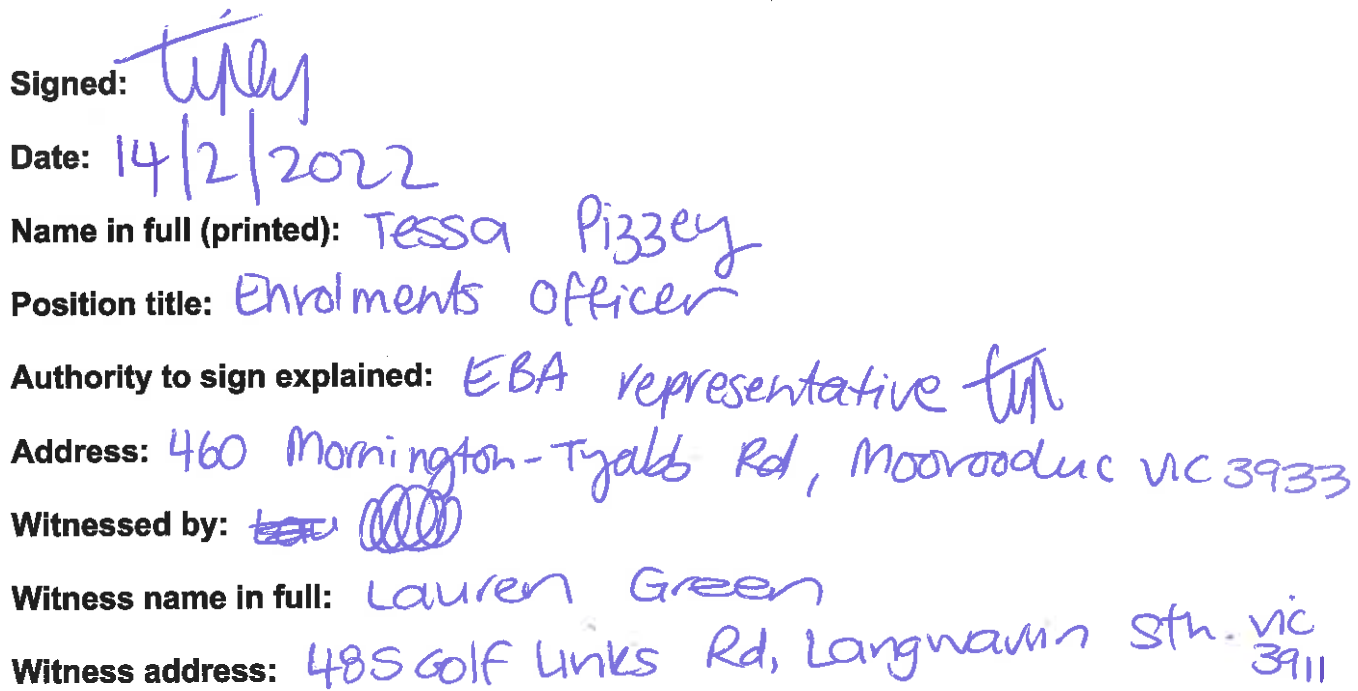 Signed:
Date: 14/2/2022
Name in full (printed): Tessa Pizzey
Position title: Enrolments Officer
Authority to sign explained: EBA representative
Address: 460 Mornington-Tyabb Rd, Moorooduc VIC 3933
Witnessed by:
Witness name in full: Lauren Green
Witness address: 485 Golf Links Rd, Langwarrin Sth. VIC 3911